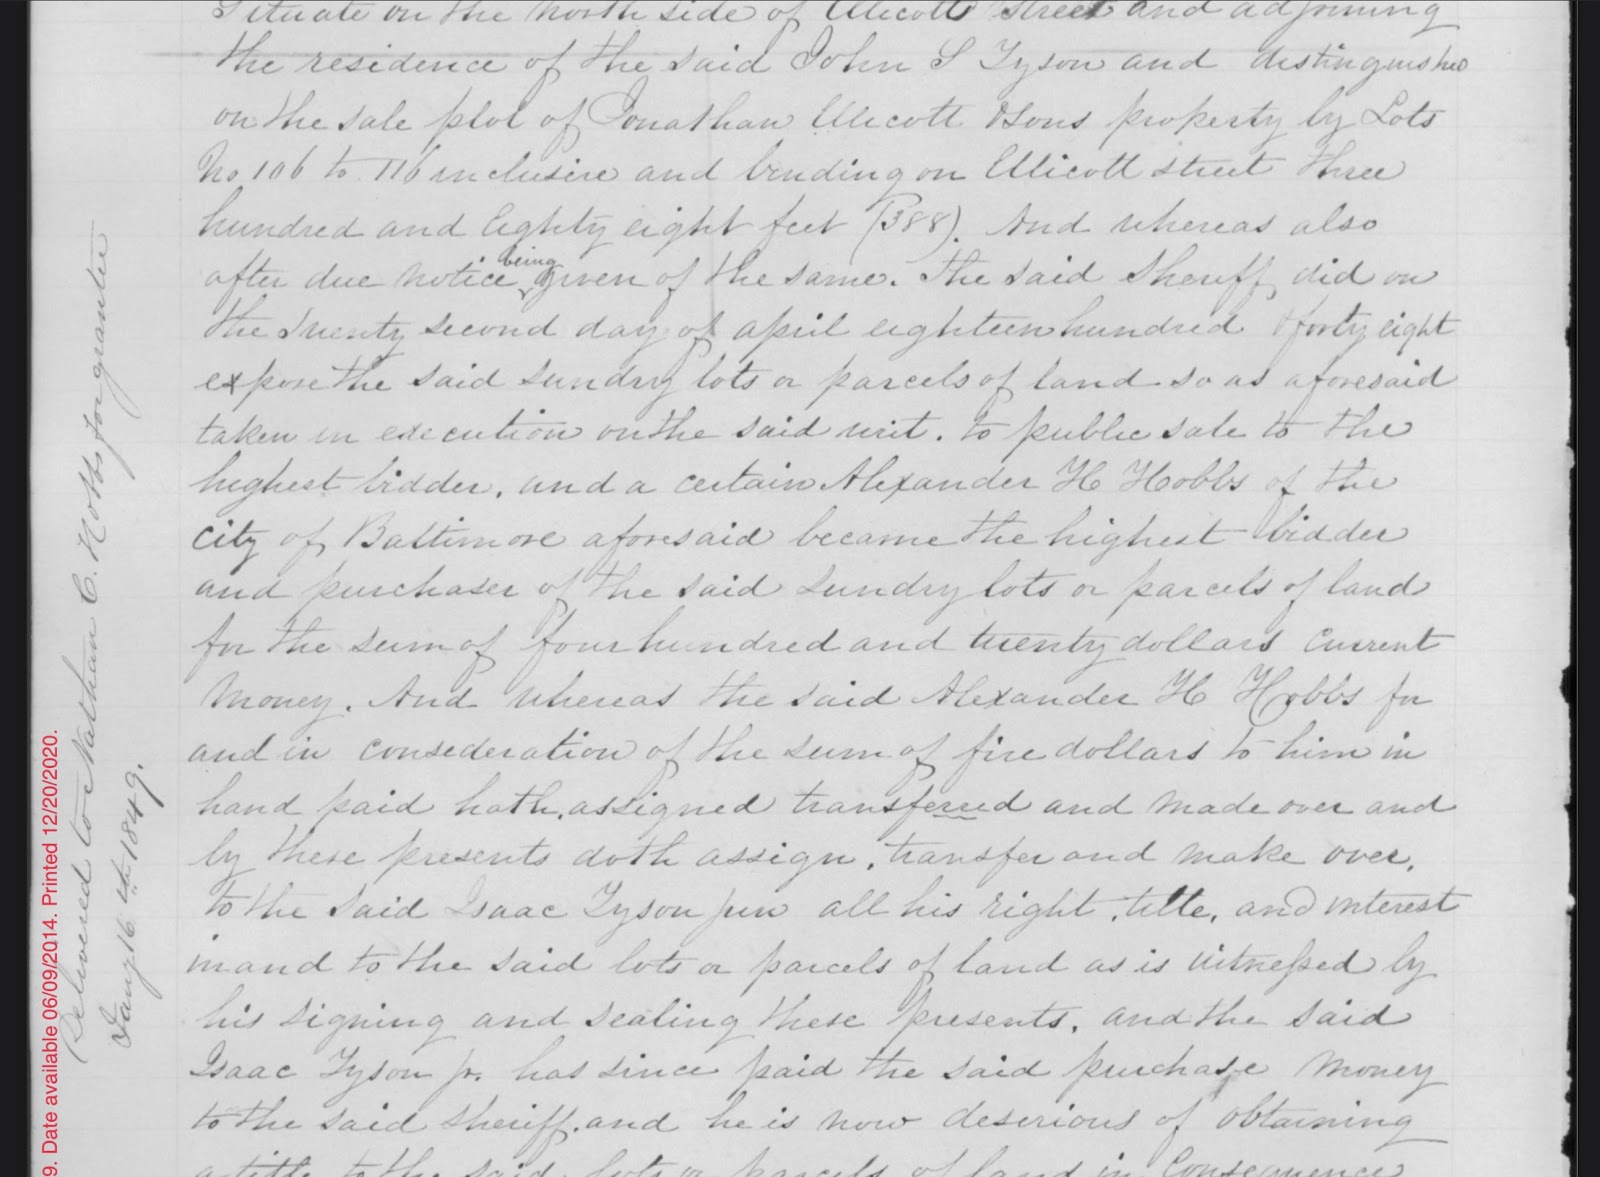 Situate on the North side of Ellicott Street and adjoining
the residence of the said John S Tyson and distinguished
on the sale plot of Jonathan Ellicott & Sons property by Lots
No 106 to 116 inclusive and binding on Ellicott street three
hundred and Eighty eight feet (388). And whereas also
after due notice being given of the same. The said Sheriff did on
the Twenty second day of april eighteen hundred & forty eight
expose the said sundry lots or parcels of land so as aforesaid
taken in execution on the said writ. to public sale to the
highest bidder, and a certain Alexander H Hobbs of the
city of Baltimore aforesaid became the highest bidder
and purchaser of the said sundry lots or parcels of land
for the sum of four hundred and twenty dollars current
money. And whereas the said Alexander H Hobbs for
and in consederation of the sum of five dollars to him in
hand paid hath, assigned transferred and made over and
by these presents doth assign, transfer and make over,
to the said Isaac Tyson jun all his right, title, and interest
in and to the said lots or parcels of land as is witnessed by
his signing and sealing these presents, and the said
Isaac Tyson jr. has since paid the said purchase money
to the said sheriff, and he is now deserious of obtaining
a title to the said lots or parcels of land in Consequence
Delivered to Nathan C. Hobbs for grantee
Jany 16th 1849.
9. Date available 06/09/2014. Printed 12/20/2020.